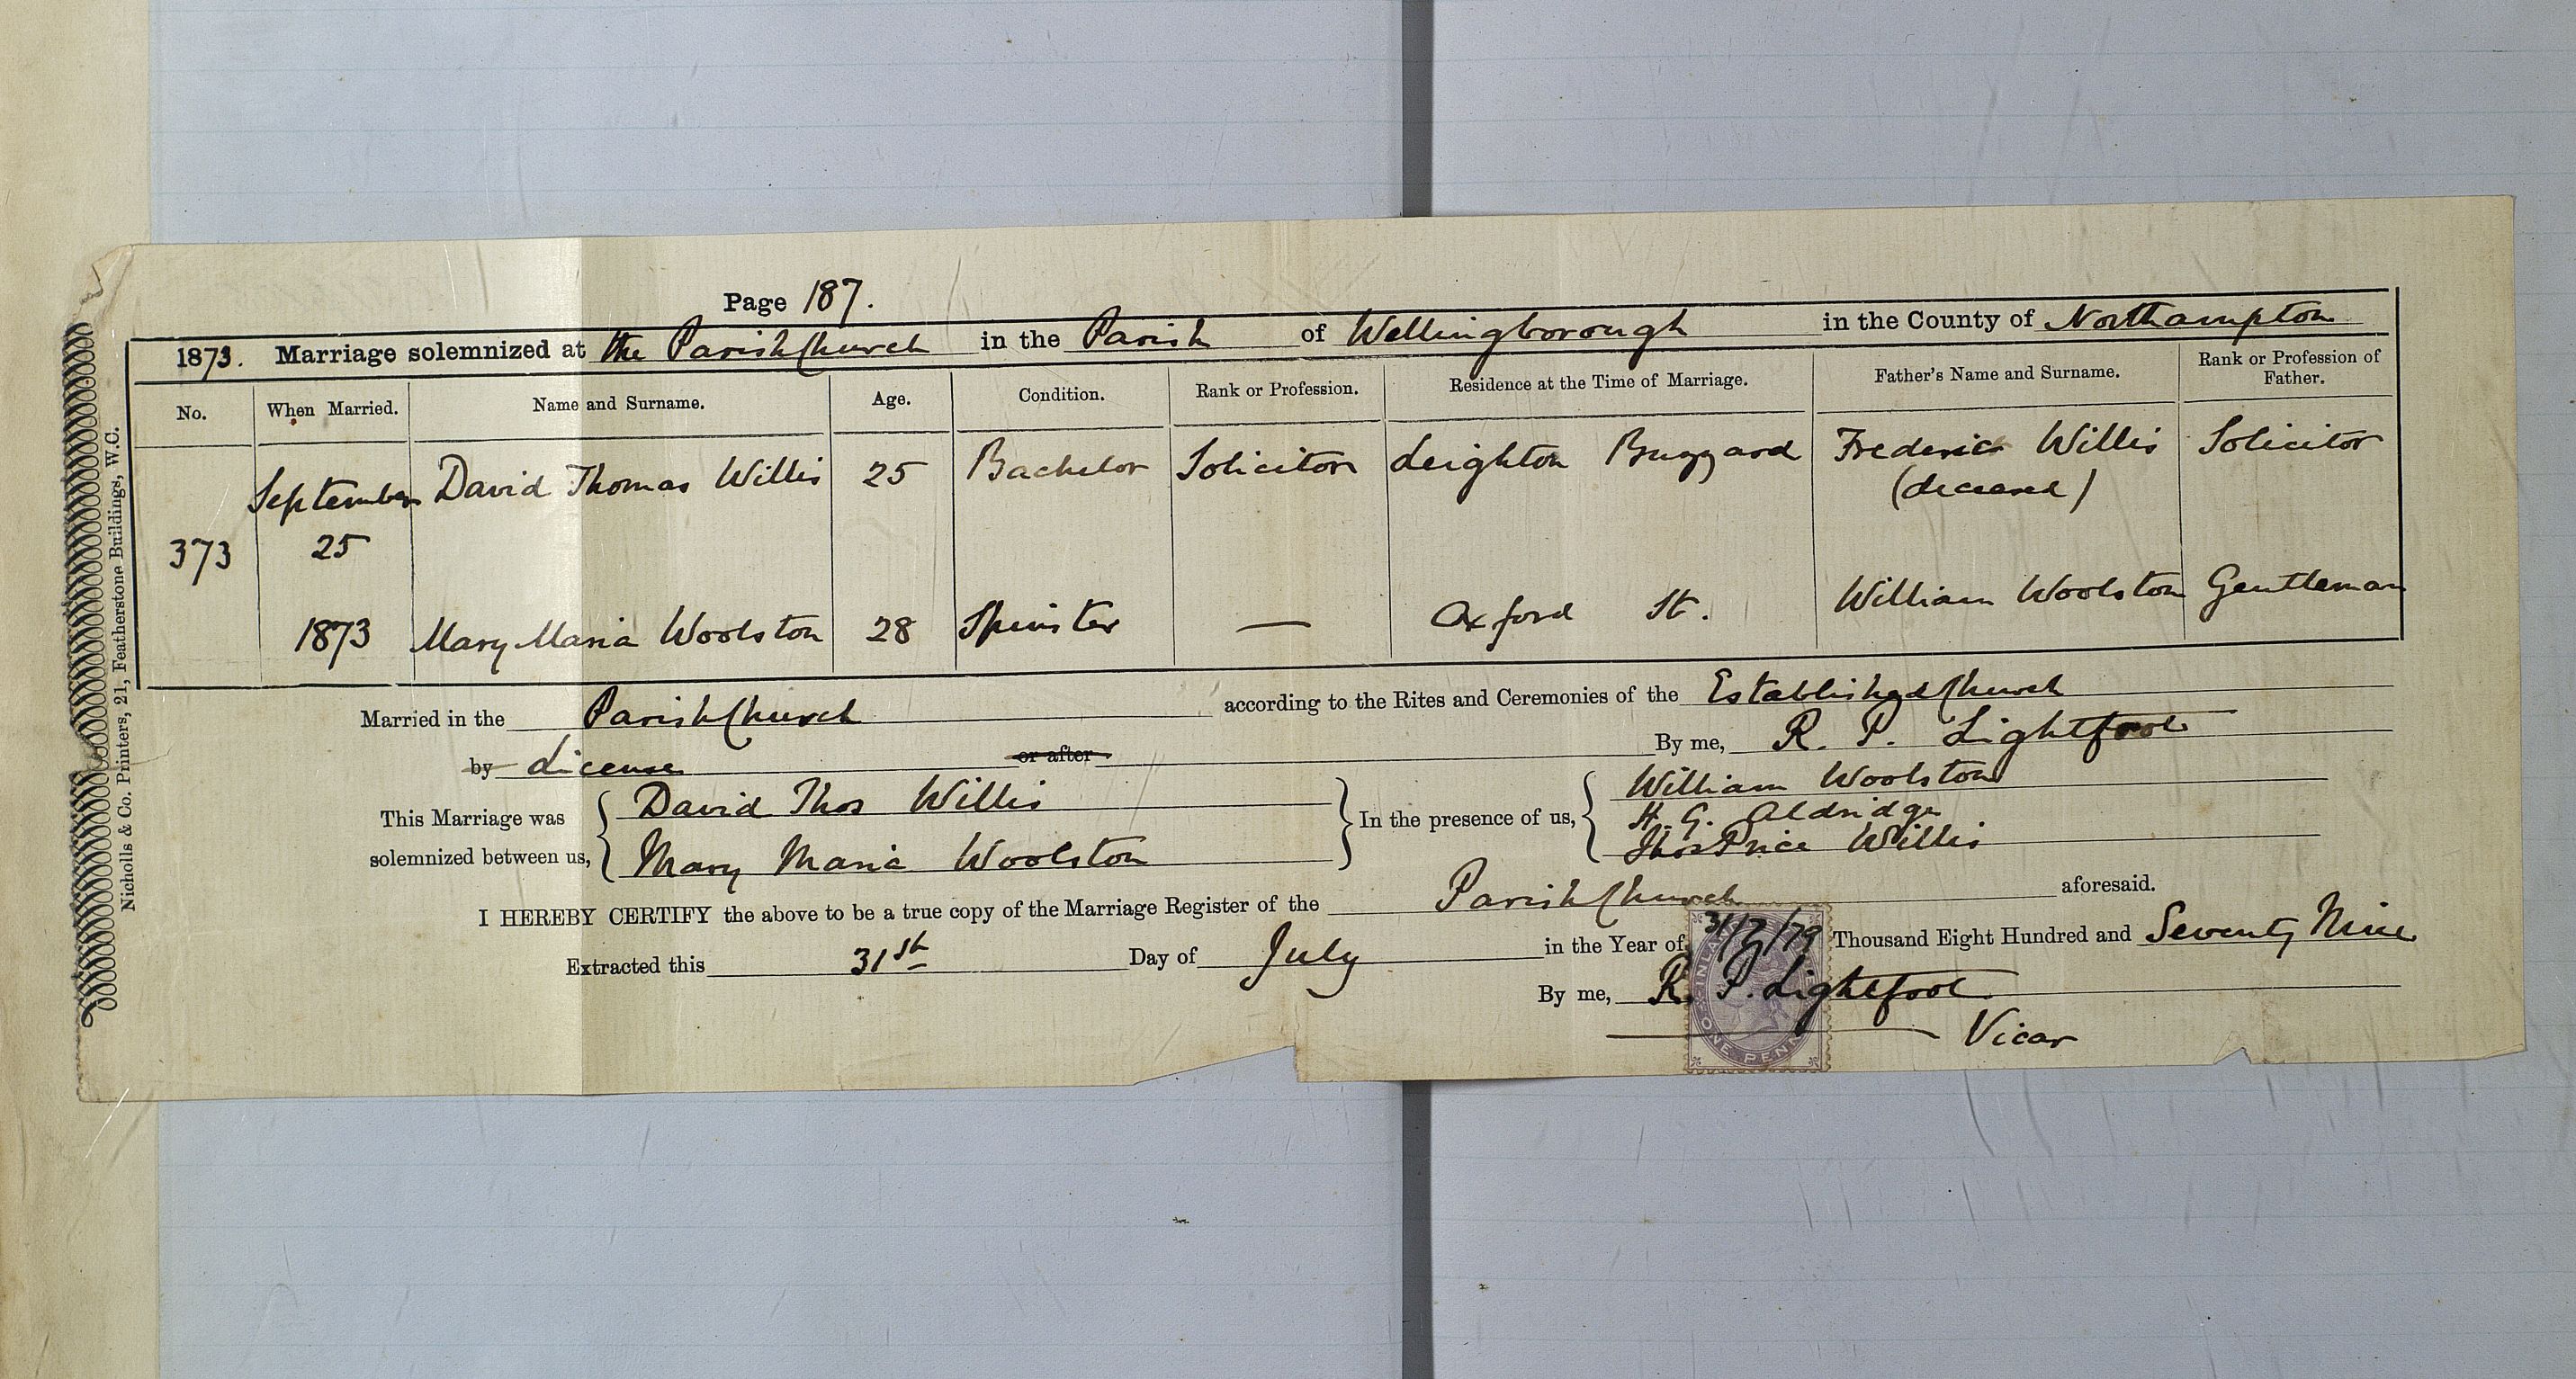 Page 187.
1873. Marriage solemnized at the Parish Church in the Parish of Wellingborough in the County of Northampton
No. When Married. Name and Surname. Age. Condition. Rank or Profession. Residence at the Time of Marriage. Father's Name and Surname. Rank or Profession of Father.
373 September 25 1873
David Thomas Willis 25 Bachelor Solicitor Leighton Buzzard Frederick Willis (deceased) Solicitor
Mary Maria Woolston 28 Spinster — Oxford St. William Woolston Gentleman
Married in the Parish Church according to the Rites and Ceremonies of the Established Church
by License or after By me, R. P. Lightfoot
This Marriage was solemnized between us, David Thos Willis
Mary Maria Woolston
In the presence of us, William Woolston
H. G. Aldridge
Thos Price Willis
I HEREBY CERTIFY the above to be a true copy of the Marriage Register of the Parish Church aforesaid.
Extracted this 31st Day of July in the Year of 31/7/79 Thousand Eight Hundred and Seventy Nine
By me, R. P. Lightfoot
Vicar
ONE PENNY
Nicholls & Co. Printers, 21, Featherstone Buildings, W.C.